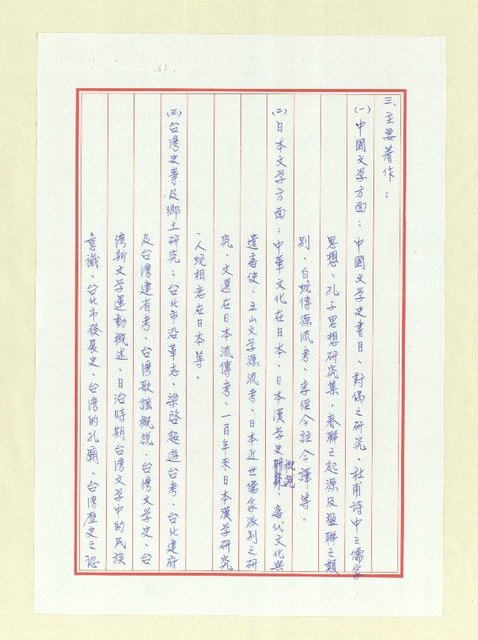 三、主要著作：
(一)中國文学方面：中國文學史書目、對偶之研究、杜甫詩中之儒家
思想、孔子思想研究集、春聯之起源及楹聯之類
別、白蛇傳源流考、孝經今註今譯等。
(二)日本文学方面：中華文化在日本、日本漢学史概説、唐代文化與
遣唐使、五山文学源流考、日本近世儒家派別之研
究、文選在日本流傳考、一百年來日本漢学研究
、人蛇相恋在日本等。
(三)台湾史事及鄉土研究：台北市沿革志、梁啓超遊台考、台北建府
及台湾建省考、台湾歌謠概説、台湾文学史、台
湾新文学運動概述、日治時期台湾文学中的民族
意識、台北市發展史、台湾的孔廟、台湾歷史之認